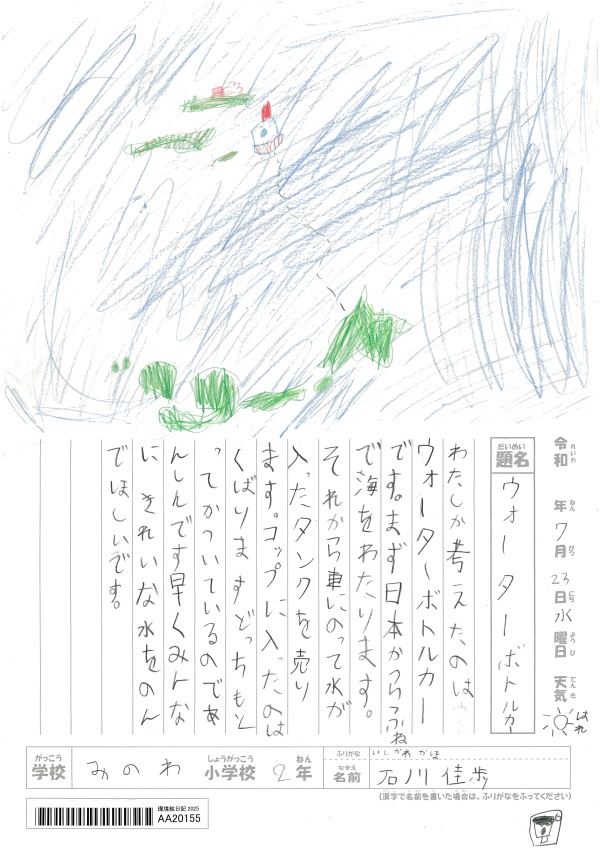 令和 年 7月 23日 水曜日 天気 はれ
れいわ ねん がつ にち ようび てんき
だいめい
題名 ウォーターボトルカー
わたしが考えたのは
ウォーターボトルカー
です。まず日本からふね
で海をわたります。
それから車にのって水が
入ったタンクを売り
ます。コップに入ったのは
くばりますどっちもと
ってかついているのであ
んしんです早くみんな
に きれいな水をのん
でほしいです。
がっこう しょうがっこう ねん ふりがな いしかわ かほ
学校 みのわ 小学校 2年 なまえ 名前 石川 佳歩
(漢字で名前を書いた場合は、ふりがなをふってください)
環境絵日記 2025
AA20155